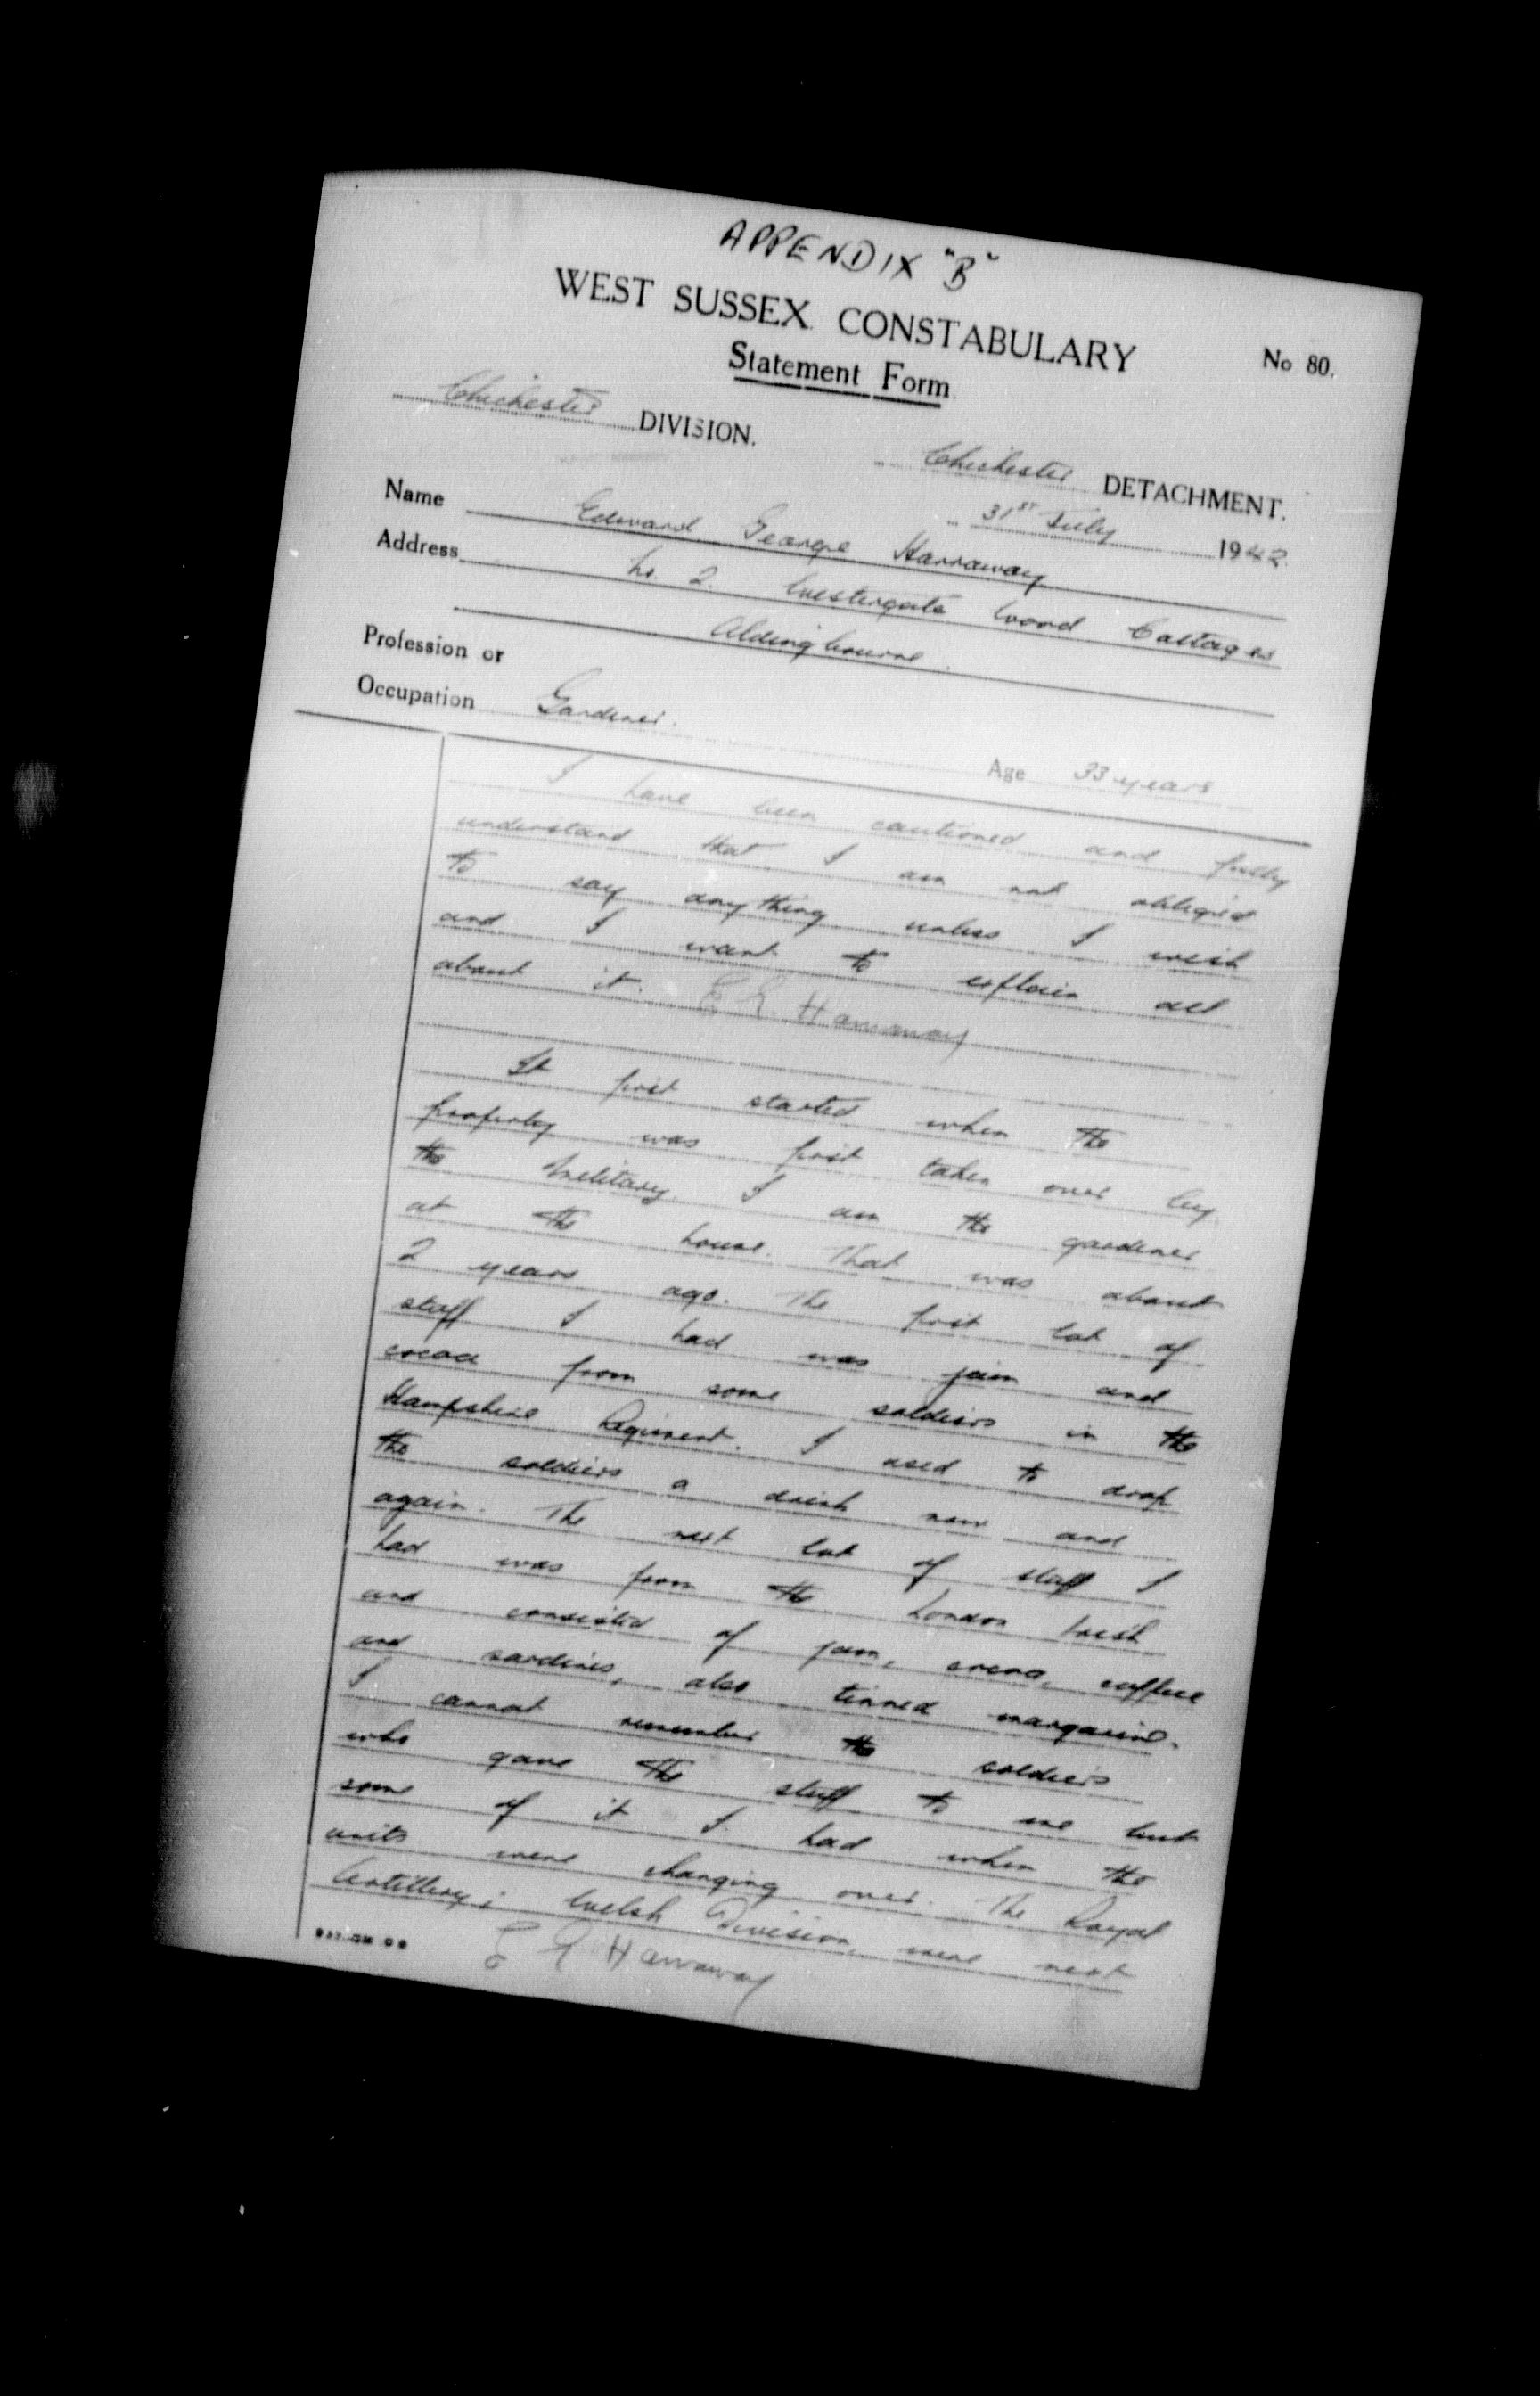 APPENDIX "B"
WEST SUSSEX CONSTABULARY
No 80.
Statement Form
Chichester DIVISION.
Chichester DETACHMENT.
31st July 1942
Name Edward George Harraway
Address No 2. Westergate Wood Cottages
Aldingbourne.
Profession or
Occupation Gardener.
Age 33 years
I have been cautioned and fully
understand that I am not obliged
to say anything unless I wish
and I want to explain all
about it. E G. Harraway
It first started when the
property was first taken over by
the Military. I am the gardener
at the house. That was about
2 years ago. The first lot of
stuff I had was jam and
cocoa from some soldiers in the
Hampshire Regiment. I used to drop
the soldiers a drink now and
again. The next lot of stuff I
had was from the London Irish
and consisted of jam, cocoa, coffee
and sardines, also tinned margarine.
I cannot remember the soldiers
who gave the stuff to me but
some of it I had when the
units were changing over. The Royal
Artillery; Welsh Division, were next
E G Harraway